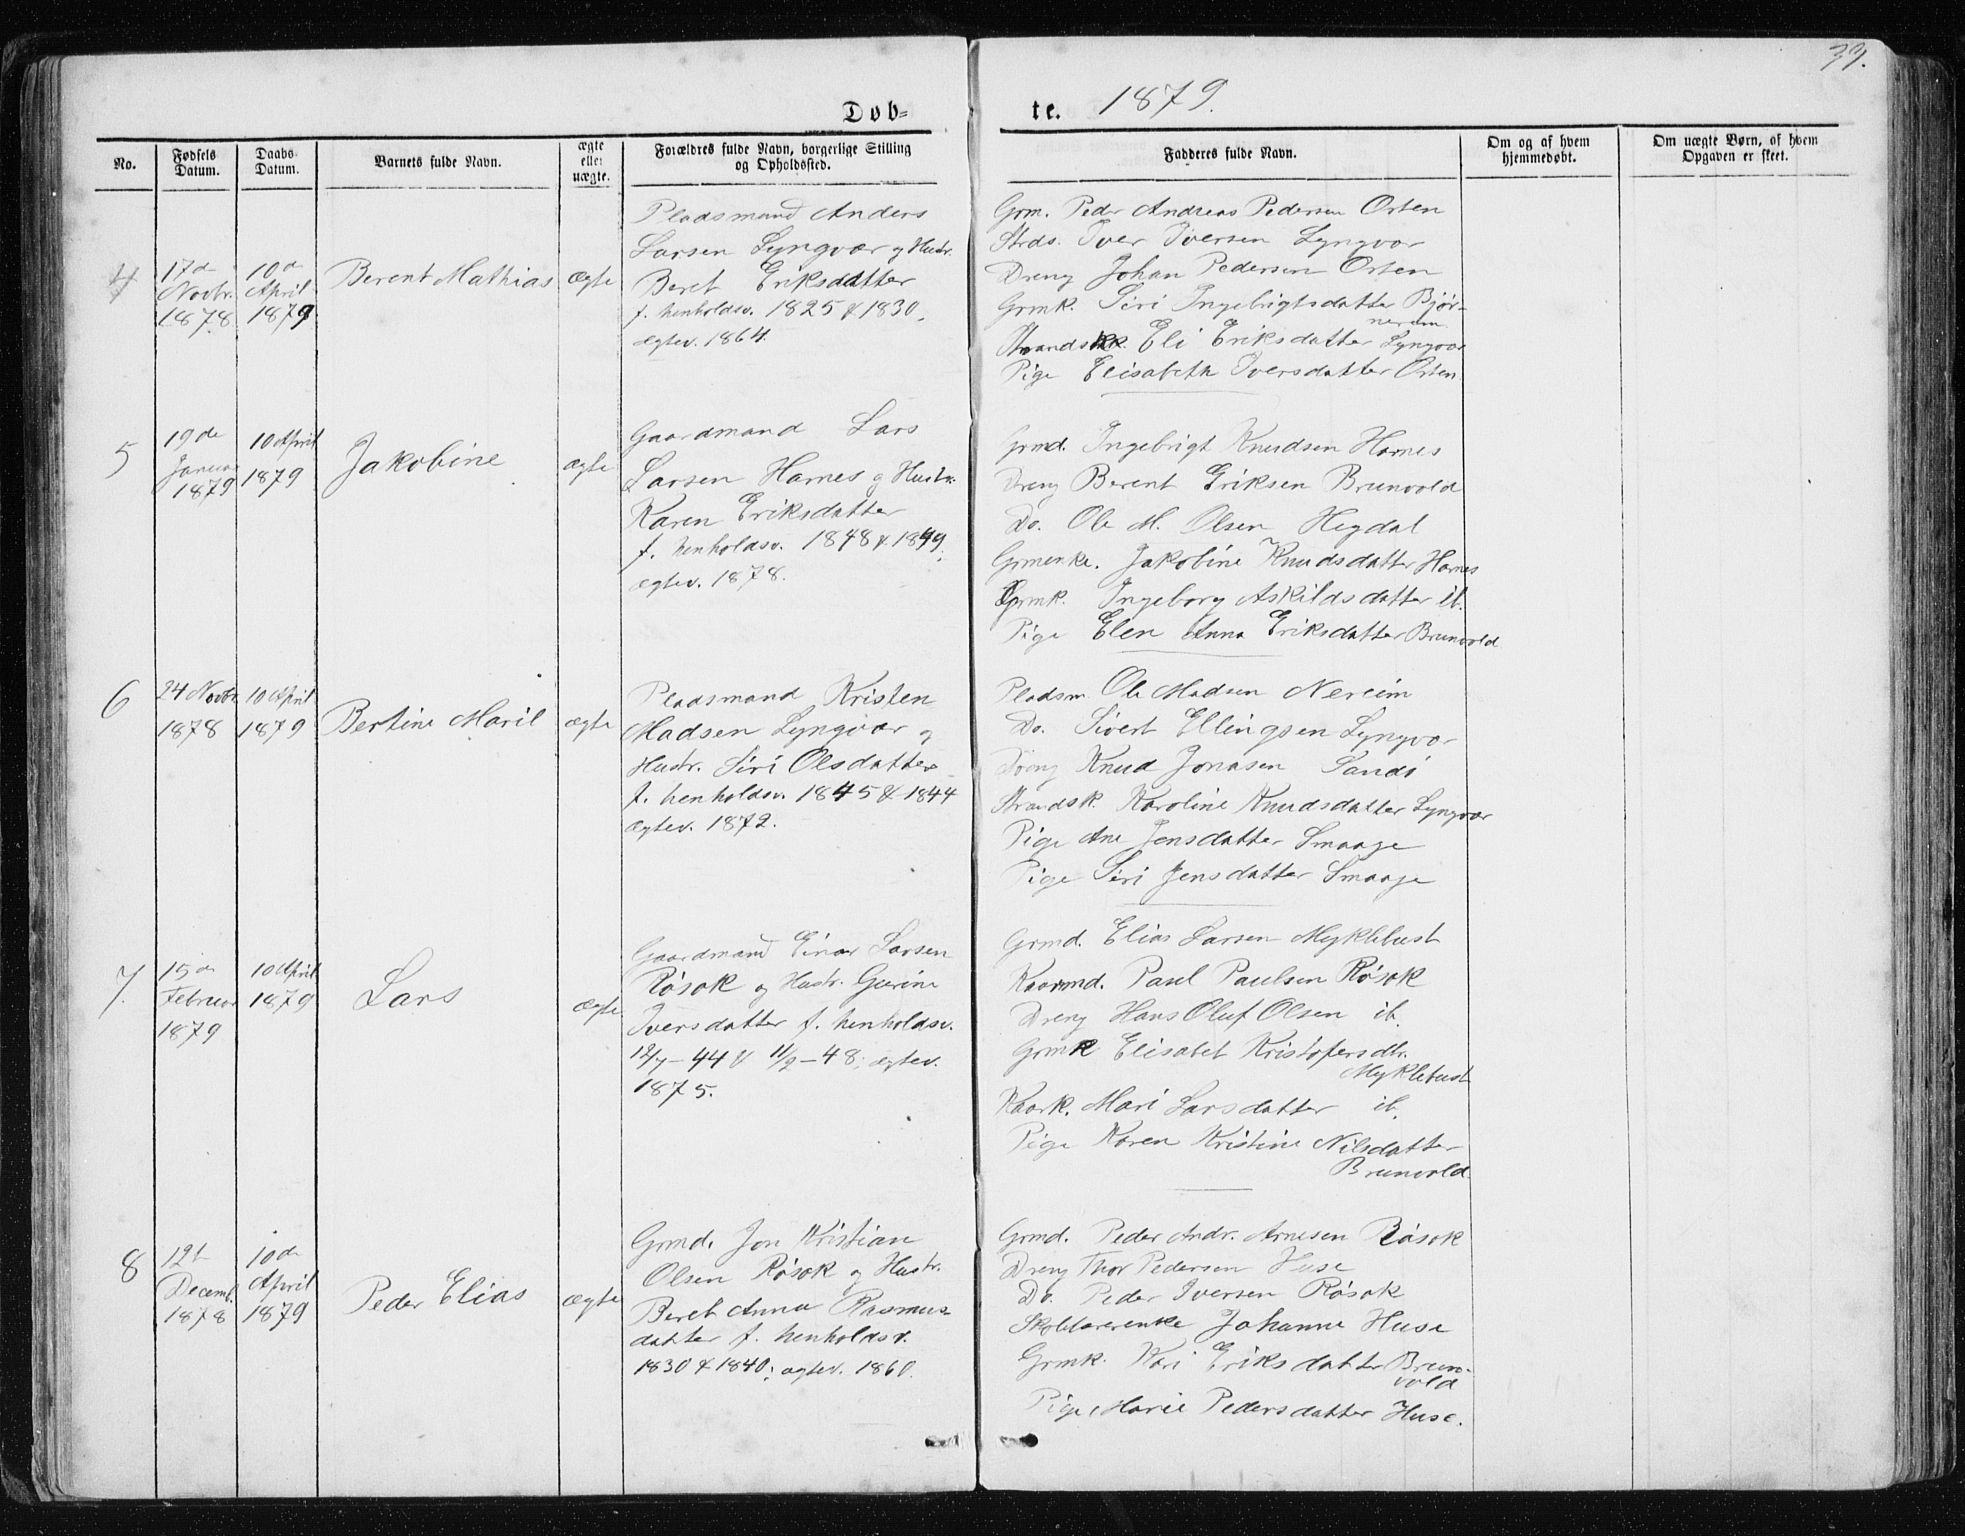 39.
Døb-
te. 1879.
No.
Fødsels Datum.
Daabs Datum.
Barnets fulde Navn.
ægte eller uægte.
Forældres fulde Navn, borgerlige Stilling og Opholdssted.
Fadderes fulde Navn.
Om og af hvem hjemmedøbt.
Om uægte Børn, af hvem Opgaven er skeet.
4
17de
Novbr.
1878
10de
April
1879
Berent Mathias
ægte
Pladsmand Anders
Larsen Lyngvær og Hustr.
Beret Eriksdatter
f. henholdsv. 1825 & 1830,
ægtev. 1864.
Grm. Peder Andreas Pedersen Orten
Strds. Iver Iversen Lyngvær
Dreng Johan Pedersen Orten
Grmk. Siri Ingebrigtsdatter Bjør-
nerem
Strandsk. Eli Eriksdatter Lyngvær
Pige Elisabeth Iversdatter Orten
5
19de
Januar
1879
10 April
1879
Jakobine
ægte
Gaardmand Lars
Larsen Harnes og Hustr.
Karen Eriksdatter
f. henholdsv. 1848 & 1849,
ægtev. 1878.
Grmd. Ingebrigt Knudsen Harnes
Dreng Berent Eriksen Brunvold
Do. Ole M. Olsen Hegdal
Grmenke. Jakobine Knudsdatter Harnes
Grmk. Ingeborg Askildsdatter ib.
Pige Elen Anna Eriksdatter Brunvold
6
24 Novbr
1878
10 April
1879
Bertine Marit
ægte
Pladsmand Kristen
Madsen Lyngvær og
Hustr. Siri Olsdatter
f. henholdsv. 1845 & 1844
ægtev. 1872.
Pladsm. Ole Madsen Nereim
Do. Sivert Ellingsen Lyngvær
Dreng Knud Jonasen Sandø
Strandsk. Karoline Knudsdatter Lyngvær
Pige Ane Jensdatter Smaage
Pige Siri Jensdatter Smaage
7.
15de
Februar
1879
10 April
1879
Lars
ægte
Gaardmand Einar Larsen
Røsok og Hustr. Gurine
Iversdatter f. henholdsv.
12/7-44 & 11/9-48; ægtev.
1875.
Grmd. Elias Larsen Myklebust
Kaarmd. Paul Paulsen Røsok
Dreng Hans Oluf Olsen ib.
Grmk Elisabet Kristofersdtr.
Myklebust
Kaark. Mari Larsdatter ib.
Pige Karen Kristine Nilsdatter
Brunvold
8
12t
Decemb.
1878
10de
April
1879
Peder Elias
ægte
Grmd. Jon Kristian
Olsen Røsok og Hustr.
Beret Anna Rasmus-
datter f. henholdsv.
1830 & 1840; ægtev. 1860.
Grmd. Peder Andr. Arnesen Røsok
Dreng Thor Pedersen Huse
Do. Peder Iversen Røsok
Skolelærerenke Johanne Huse
Grmk. Kari Eriksdatter Brun-
vold
Pige Marie Pedersdatter Huse.